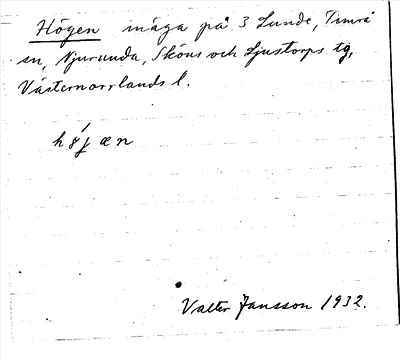 Högen inäga på 3 Lunde, Timrå
sn, Njurunda, Sköns och Ljustorps tg,
Västernorrlands l.
høʹjæn
Valter Jansson 1932.